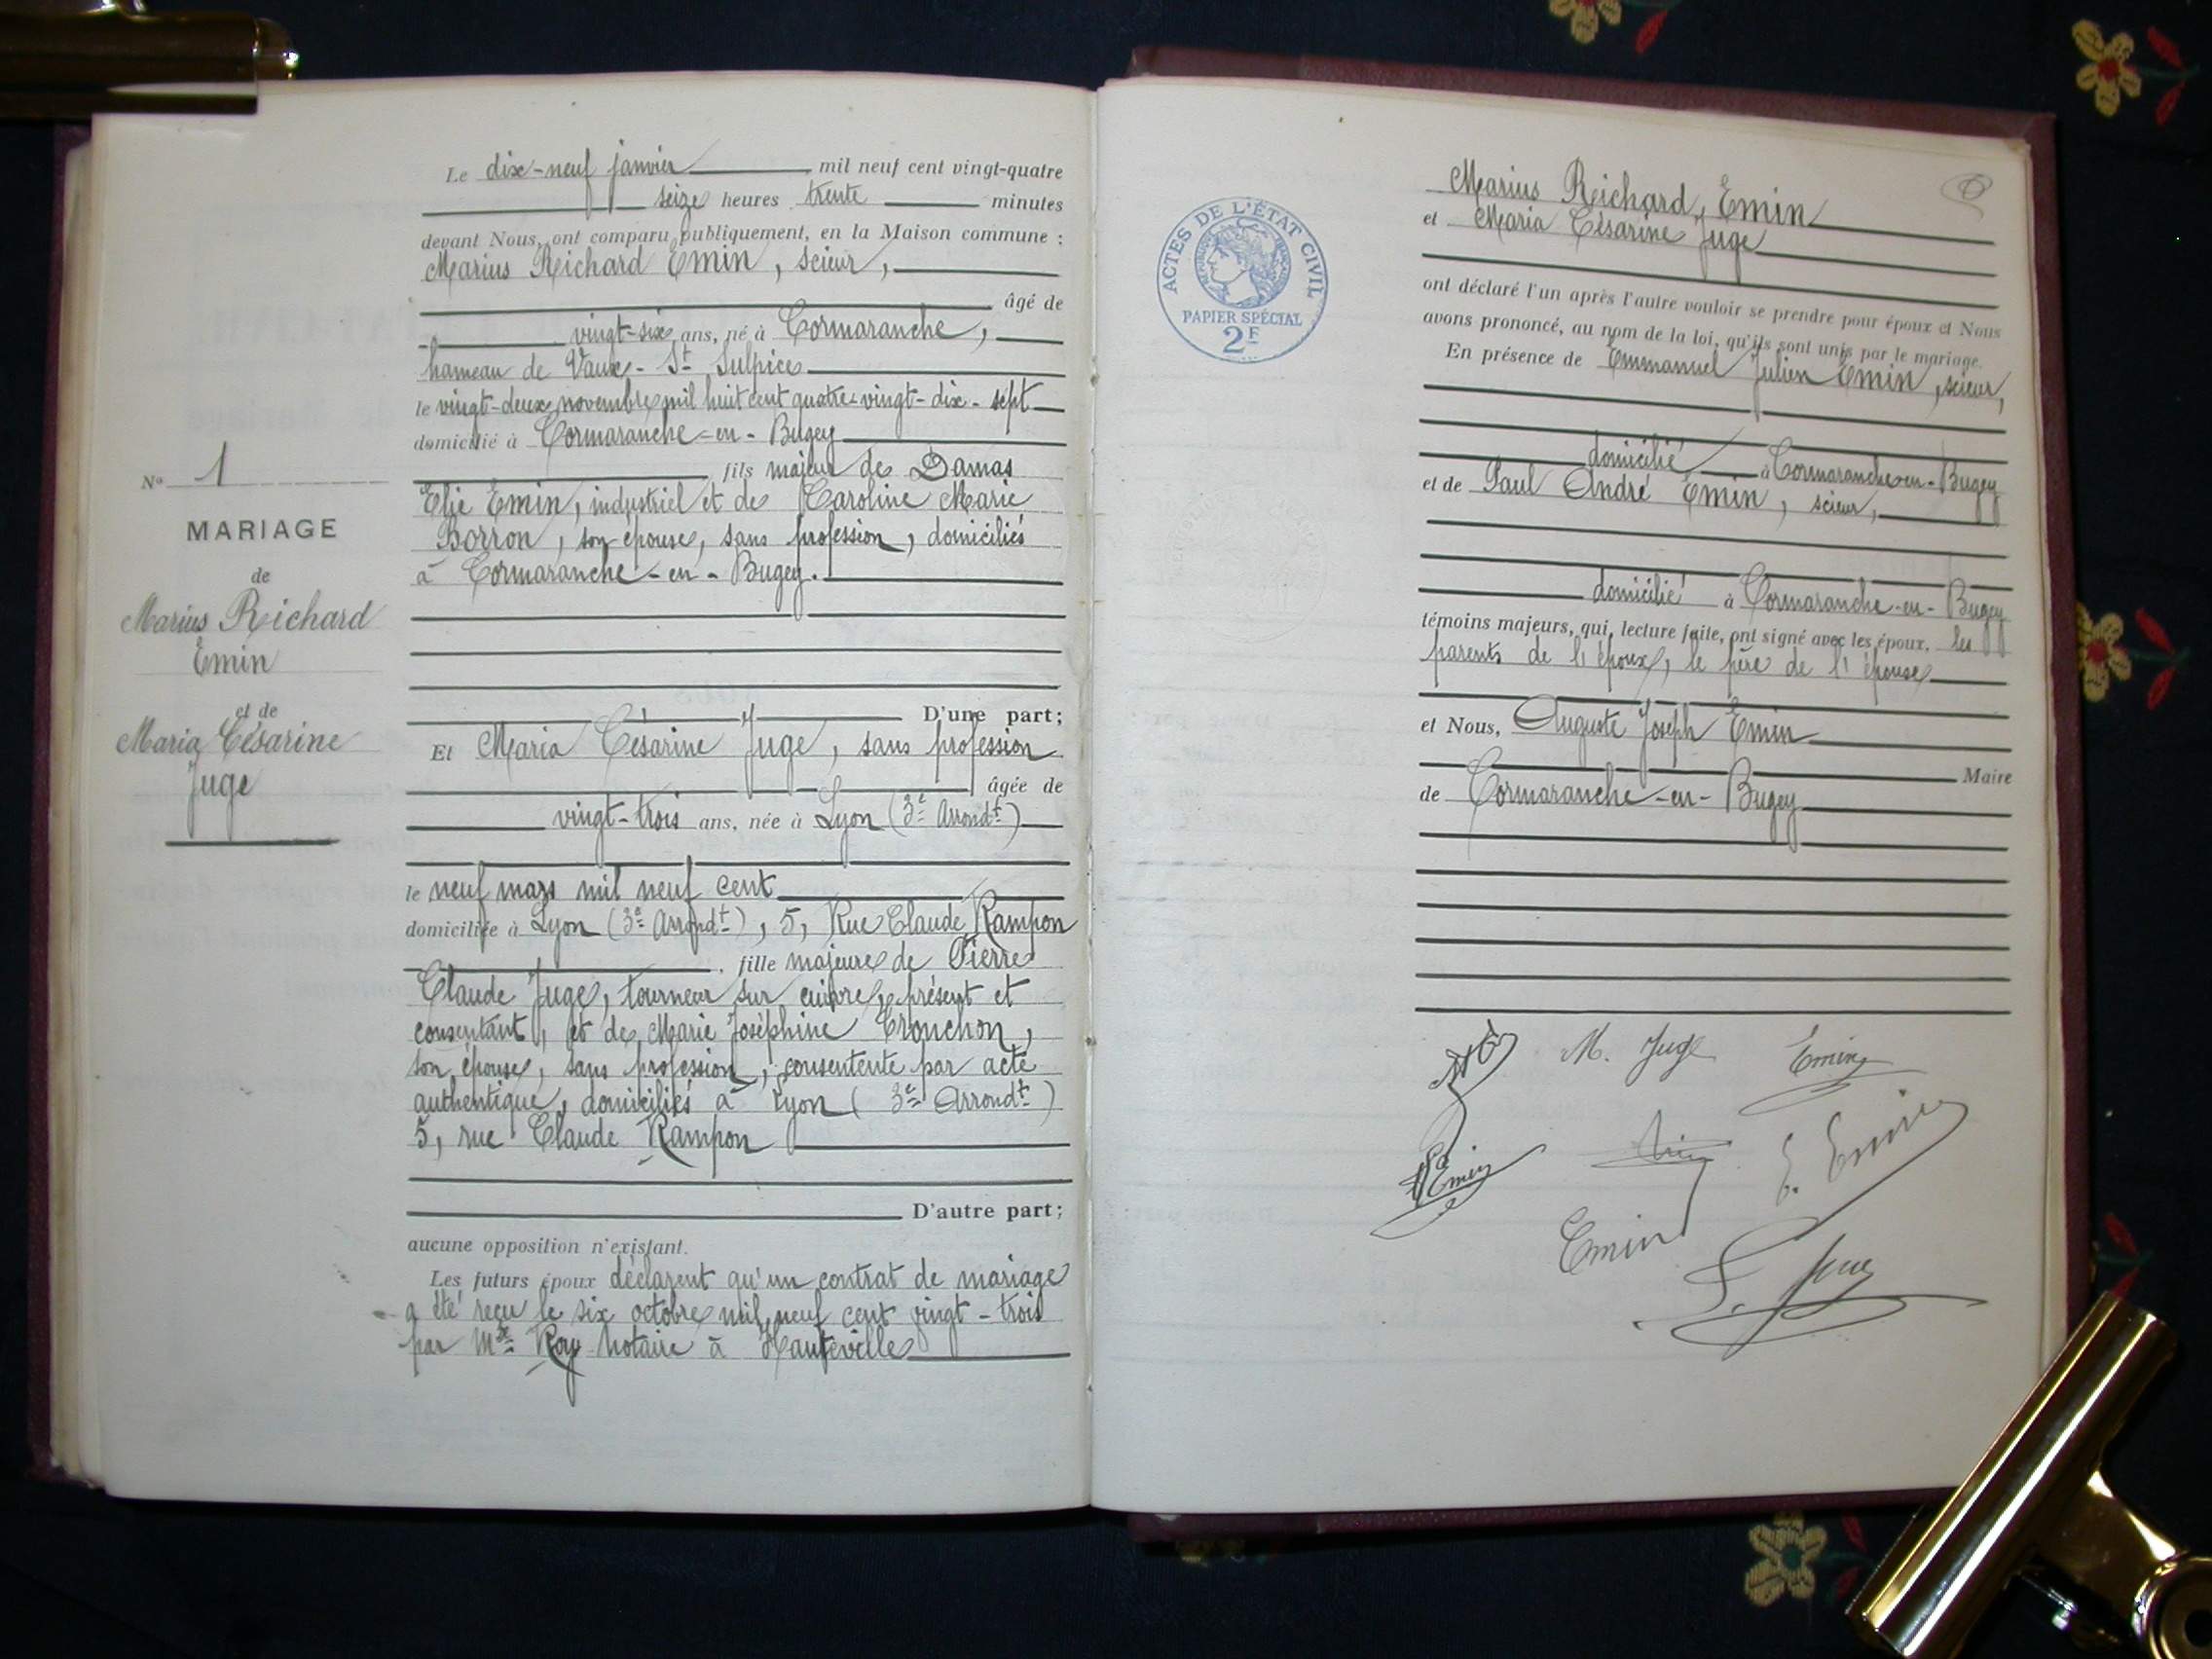 Le dix-neuf janvier mil neuf cent vingt-quatre
seize heures trente minutes
devant Nous, ont comparu publiquement, en la Maison commune :
Marius Reichard Emin, scieur,
âgé de
vingt-six ans, né à Cormaranche,
hameau de Vaux-St Sulpice
le vingt-deux novembre mil huit cent quatre-vingt-dix-sept
domicilié à Cormaranche-en-Bugey
fils majeur de Damas
Elie Emin, industriel et de Caroline Marie
Borron, son épouse, sans profession, domiciliés
à Cormaranche-en-Bugey.
No 1
MARIAGE
de
Marius Reichard
Emin
et de
Maria Césarine
Juge
D'une part;
Et Maria Césarine Juge, sans profession
âgée de
vingt-trois ans, née à Lyon (3e Arrondt)
le neuf mars mil neuf cent
domiciliée à Lyon (3e Arrondt), 5, Rue Claude Rampon
fille majeure de Pierre
Claude Juge, tourneur sur cuivre, présent et
consentant, et de Marie Joséphine Tronchon,
son épouse, sans profession, consentente par acte
authentique, domiciliés à Lyon (3e Arrondt)
5, rue Claude Rampon
D'autre part;
aucune opposition n'existant.
Les futurs époux déclarent qu'un contrat de mariage
a été reçu le six octobre mil neuf cent vingt-trois
par Me Roy notaire à Hauteville
ACTES DE L'ÉTAT CIVIL
PAPIER SPÉCIAL
2F
Marius Reichard, Emin
et Maria Césarine Juge
ont déclaré l'un après l'autre vouloir se prendre pour époux et Nous
avons prononcé, au nom de la loi, qu'ils sont unis par le mariage.
En présence de Emmanuel Julien Emin, scieur,
domicilié à Cormaranche-en-Bugey
et de Paul André Emin, scieur,
domicilié à Cormaranche-en-Bugey
témoins majeurs, qui, lecture faite, ont signé avec les époux, les
parents de l'époux, le père de l'épouse
et Nous, Auguste Joseph Emin
Maire
de Cormaranche-en-Bugey
M. Juge Emin
Emin E. Emin
Emin